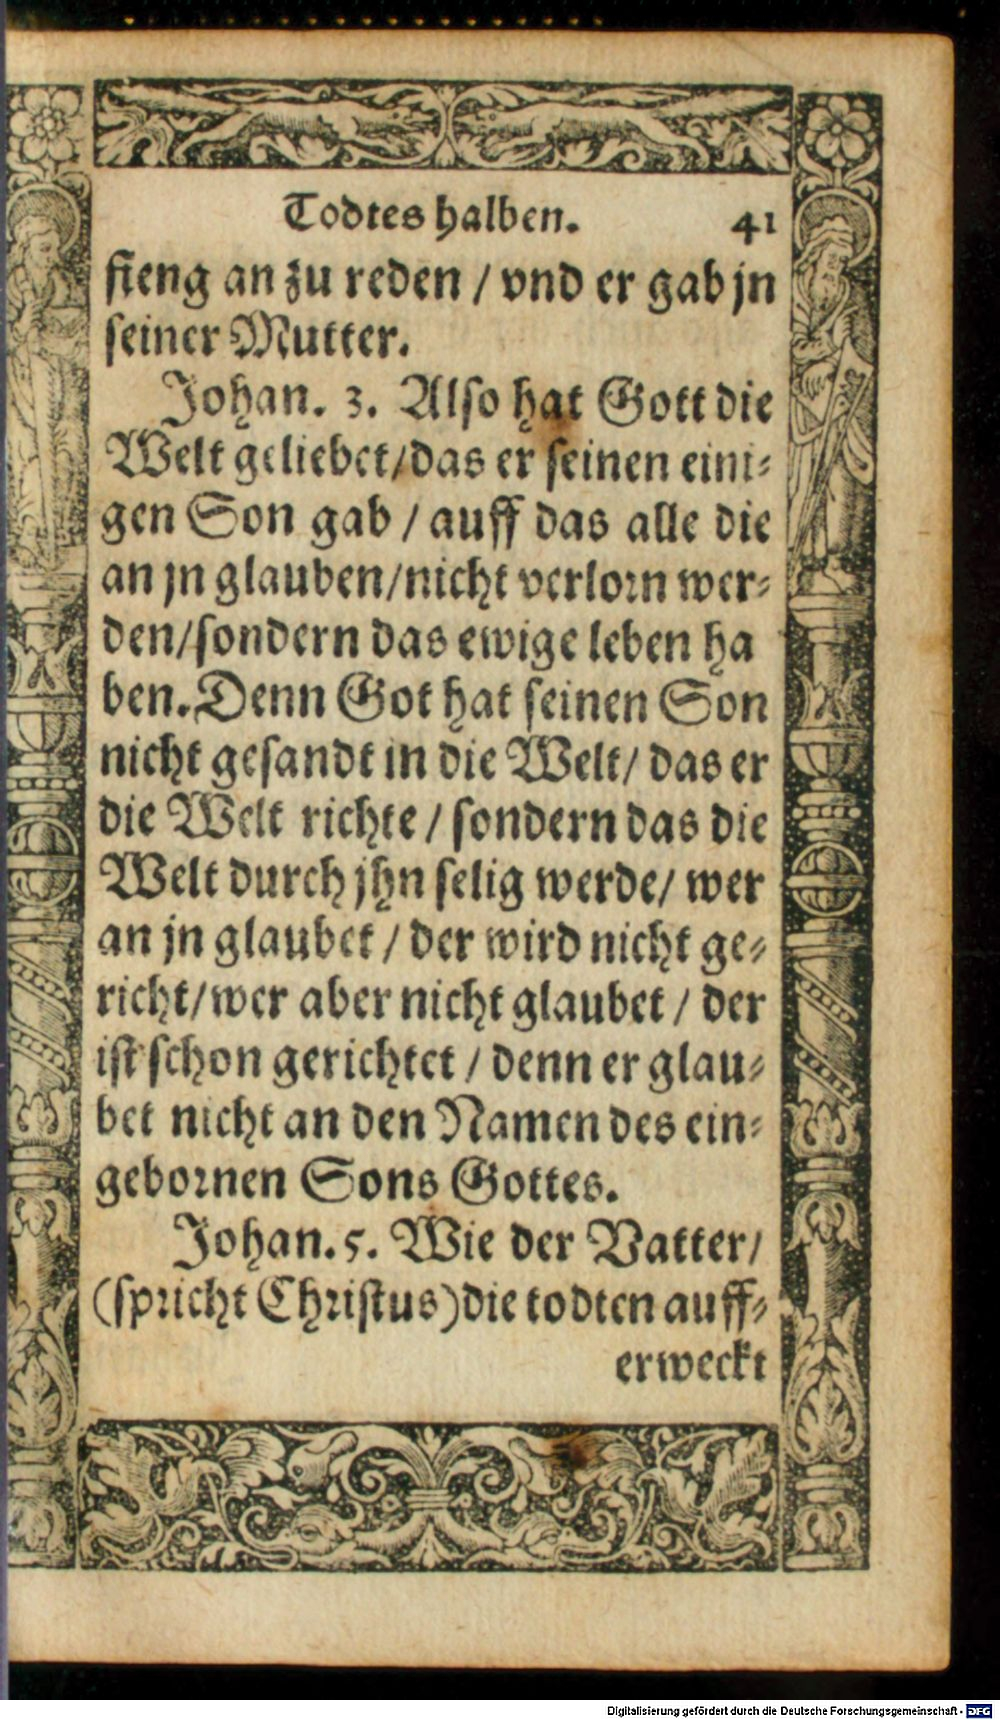 Todtes halben. 41
fieng an zu reden / vnd er gab jn
seiner Mutter.
Johan. 3. Also hat Gott die
Welt geliebet/das er seinen eini⸗
gen Son gab / auff das alle die
an jn glauben/nicht verlorn wer⸗
den/sondern das ewige leben ha
ben. Denn Got hat seinen Son
nicht gesandt in die Welt/ das er
die Welt richte / sondern das die
Welt durch jhn selig werde/ wer
an jn glaubet / der wird nicht ge⸗
richt/wer aber nicht glaubet / der
ist schon gerichtet / denn er glau⸗
bet nicht an den Namen des ein⸗
gebornen Sons Gottes.
Johan. 5. Wie der Vatter/
(spricht Christus) die todten auff⸗
erweckt
Digitalisierung gefördert durch die Deutsche Forschungsgemeinschaft - DFG